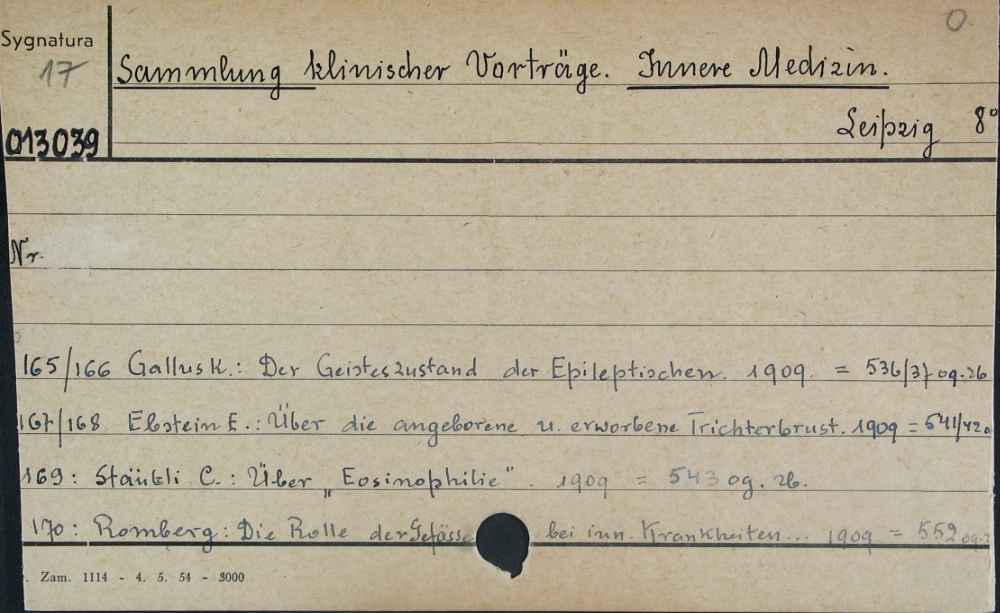 O.
Sygnatura
17
Sammlung klinischer Vorträge. Innere Medizin.
013039
Leipzig 8°
Nr.
165/166 Gallus K.: Der Geisteszustand der Epileptischen. 1909. = 536/37 og. zb
167/168 Ebstein E.: Über die angeborene u. erworbene Trichterbrust. 1909 = 541/42 o
169: Stäubli C.: Über „Eosinophilie". 1909 = 543 og. zb.
170: Romberg: Die Rolle der Gefässe bei inn. Krankheiten... 1909 = 552 og.
Zam. 1114 - 4. 5. 54 - 3000